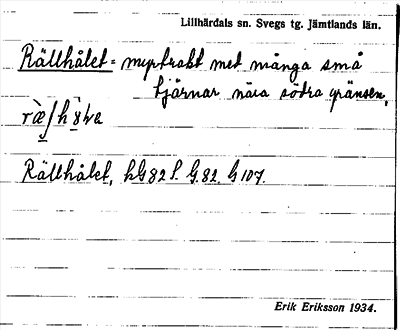 Lillhärdals sn. Svegs tg. Jämtlands län.
Rällhålet = myrtrakt met många små
tjärnar nära södra gränsen.
Rällhålet,
Erik Eriksson 1934.